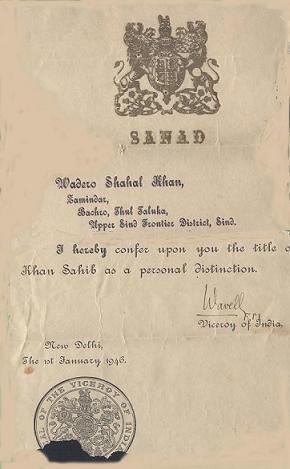 SANAD
Wadero Shahal Khan,
Zamindar,
Bachro, Thul Taluka,
Upper Sind Frontier District, Sind.
I hereby confer upon you the title o
Khan Sahib as a personal distinction.
Wavell
Viceroy of India.
New Delhi,
The 1st January 1946.
OF THE VICEROY OF INDI